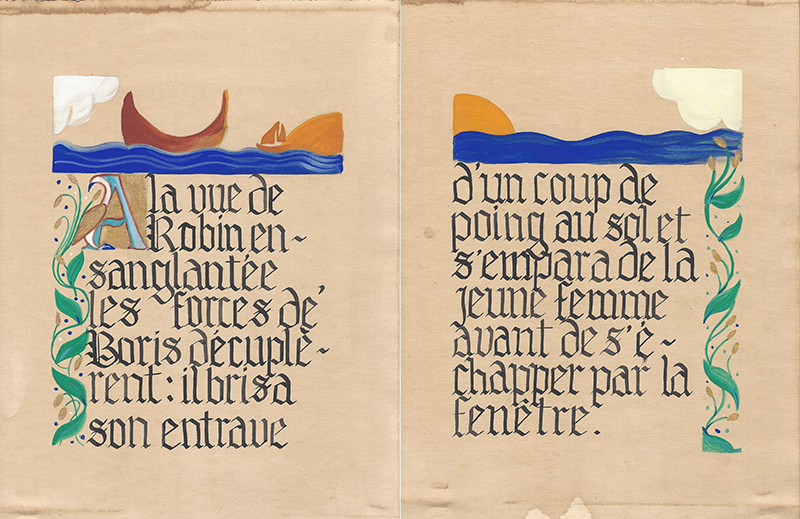 A la vue de
Robin en-
sanglantée
les forces de
Boris décuplè-
rent : il brisa
son entrave
d'un coup de
poing au sol et
s'empara de la
jeune femme
avant de s'é-
chapper par la
fenêtre.